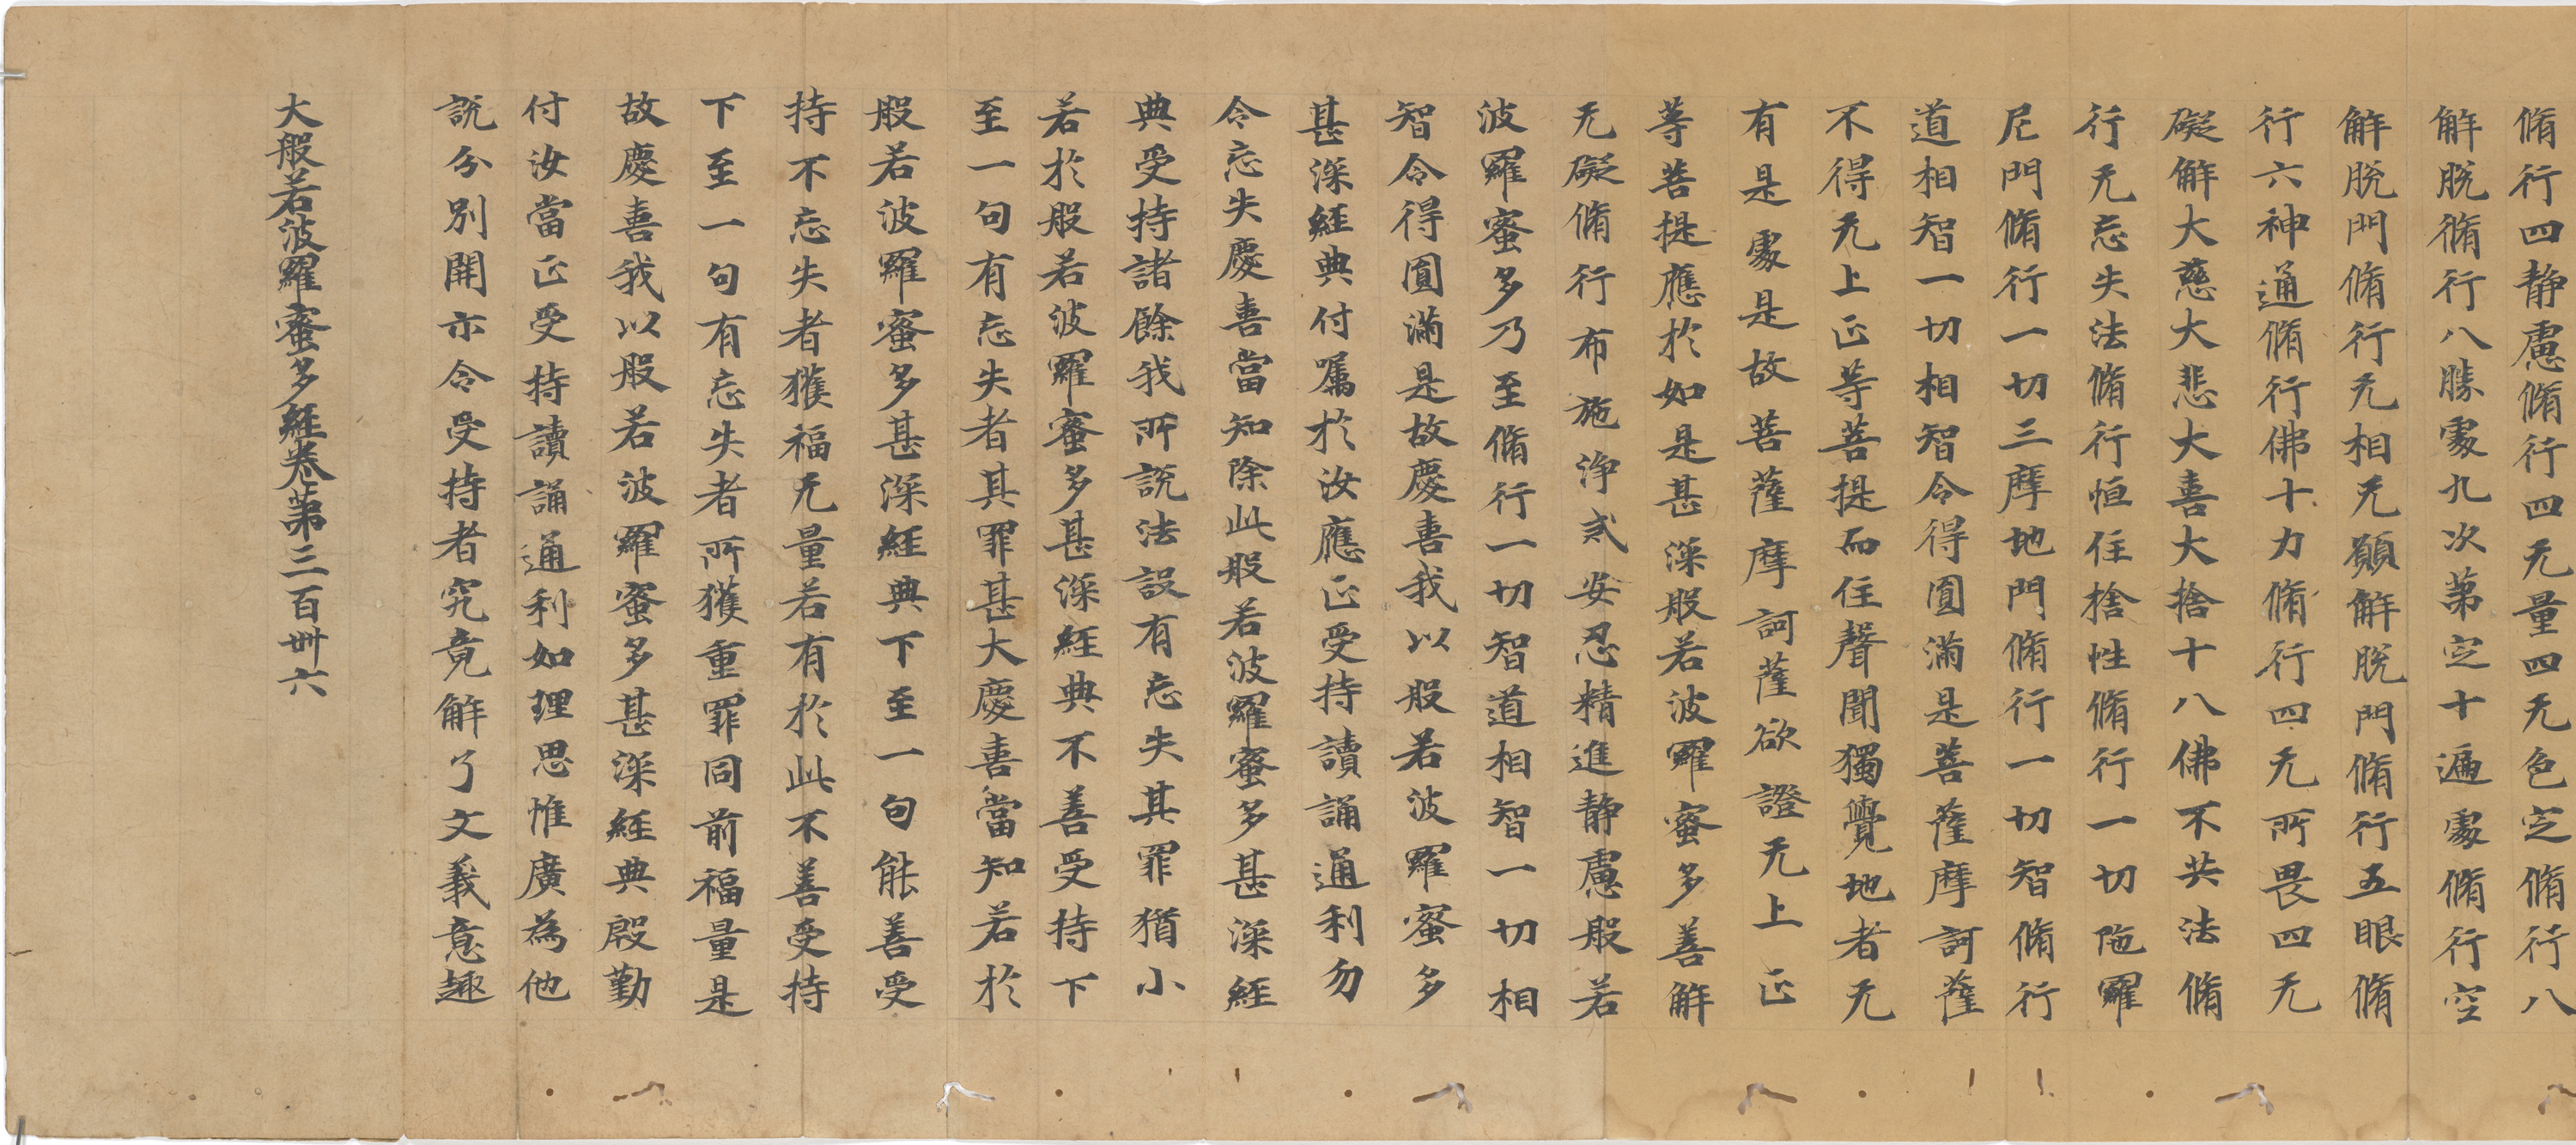 脩行四静慮脩行四无量四无色定脩行八
解脫脩行八勝處九次第定十遍處脩行空
解脫門脩行无相无願解脫門脩行五眼脩
行六神通脩行佛十力脩行四无所畏四无
礙解大慈大悲大喜大捨十八佛不共法脩
行无忘失法脩行恒住捨性脩行一切陁羅
尼門脩行一切三摩地門脩行一切智脩行
道相智一切相智令得圓滿是菩薩摩訶薩
不得无上正等菩提而住聲聞獨覺地者无
有是處是故菩薩摩訶薩欲證无上正
等菩提應於如是甚深般若波羅蜜多善解
无礙脩行布施淨戒安忍精進静慮般若
波羅蜜多乃至脩行一切智道相智一切相
智令得圓滿是故慶喜我以般若波羅蜜多
甚深經典付囑於汝應正受持讀誦通利勿
令忘失慶喜當知除此般若波羅蜜多甚深經
典受持諸餘我所說法設有忘失其罪猶小
若於般若波羅蜜多甚深經典不善受持下
至一句有忘失者其罪甚大慶喜當知若於
般若波羅蜜多甚深經典下至一句能善受
持不忘失者獲福无量若有於此不善受持
下至一句有忘失者所獲重罪同前福量是
故慶喜我以般若波羅蜜多甚深經典慇勤
付汝當正受持讀誦通利如理思惟廣為他
說分別開示令受持者究竟解了文義意趣
大般若波羅蜜多經卷第三百卌六